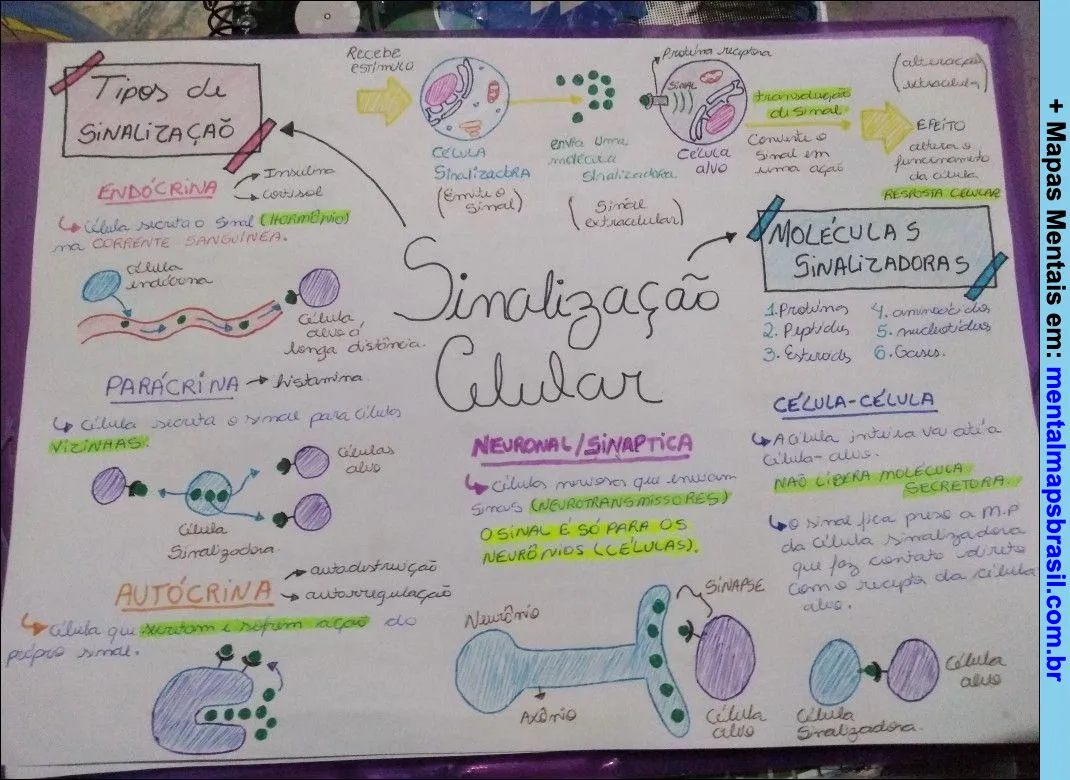 Tipos de
SINALIZAÇÃO
Recebe
estímulo
CÉLULA
Sinalizadora
(Emite o
Sinal)
envia uma
molécula
Sinalizadora
(Sinal
extracelular)
Proteína receptora
SINAL
Célula
alvo
transdução
di Sinal
Converte o
Sinal em
uma ação
(alteração
intracelular)
EFEITO
altera o
funcionamento
da célula
RESPOSTA CELULAR
ENDÓCRINA
Insulina
cortisol
Célula secreta o Sinal (HORMÔNIO)
na CORRENTE SANGUÍNEA.
célula
endócrina
Célula
alvo á
longa distância.
Sinalização
Celular
MOLÉCULAS
SINALIZADORAS
1. Proteínas
2. Peptídeos
3. Esteroides
4. aminoácidos
5. nucleotídeos
6. Gases.
PARÁCRINA
histamina
Célula secreta o sinal para células
VIZINHAS.
Células
alvo
Célula
Sinalizadora.
AUTÓCRINA
autodestruição
autorregulação
Célula que secretam e sofrem ação do
próprio sinal.
NEURONAL/SINAPTICA
Células nervosas que enviam
sinais (NEUROTRANSMISSORES)
O SINAL É SÓ PARA OS
NEURÔNIOS (CÉLULAS).
Neurônio
Axônio
SINAPSE
Célula
alvo
CÉLULA-CÉLULA
A Célula inteira vai até a
Célula-alvo.
NAÕ LIBERA MOLÉCULA
SECRETORA.
O sinal fica preso a M.P
da Célula sinalizadora
que faz contato direto
com o receptor da célula
alvo.
Célula
Sinalizadora.
Célula
alvo
+ Mapas Mentais em: mentalmapsbrasil.com.br